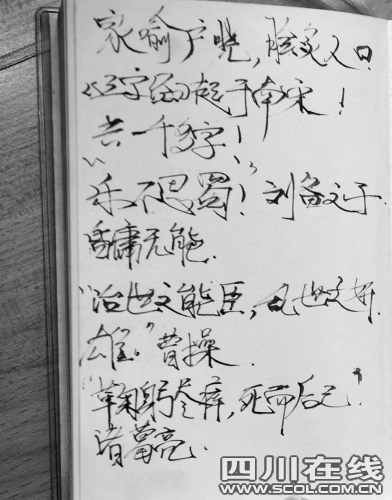 家喻户晓,脍炙人口.
三字 起于南宋!
共一千多字!
"乐不思蜀"!刘备之子
昏庸无能.
"治世之能臣,乱世之奸
雄."曹操.
"鞠躬尽瘁,死而后已"
诸葛亮.
四川在线
WWW.SCOL.COM.CN